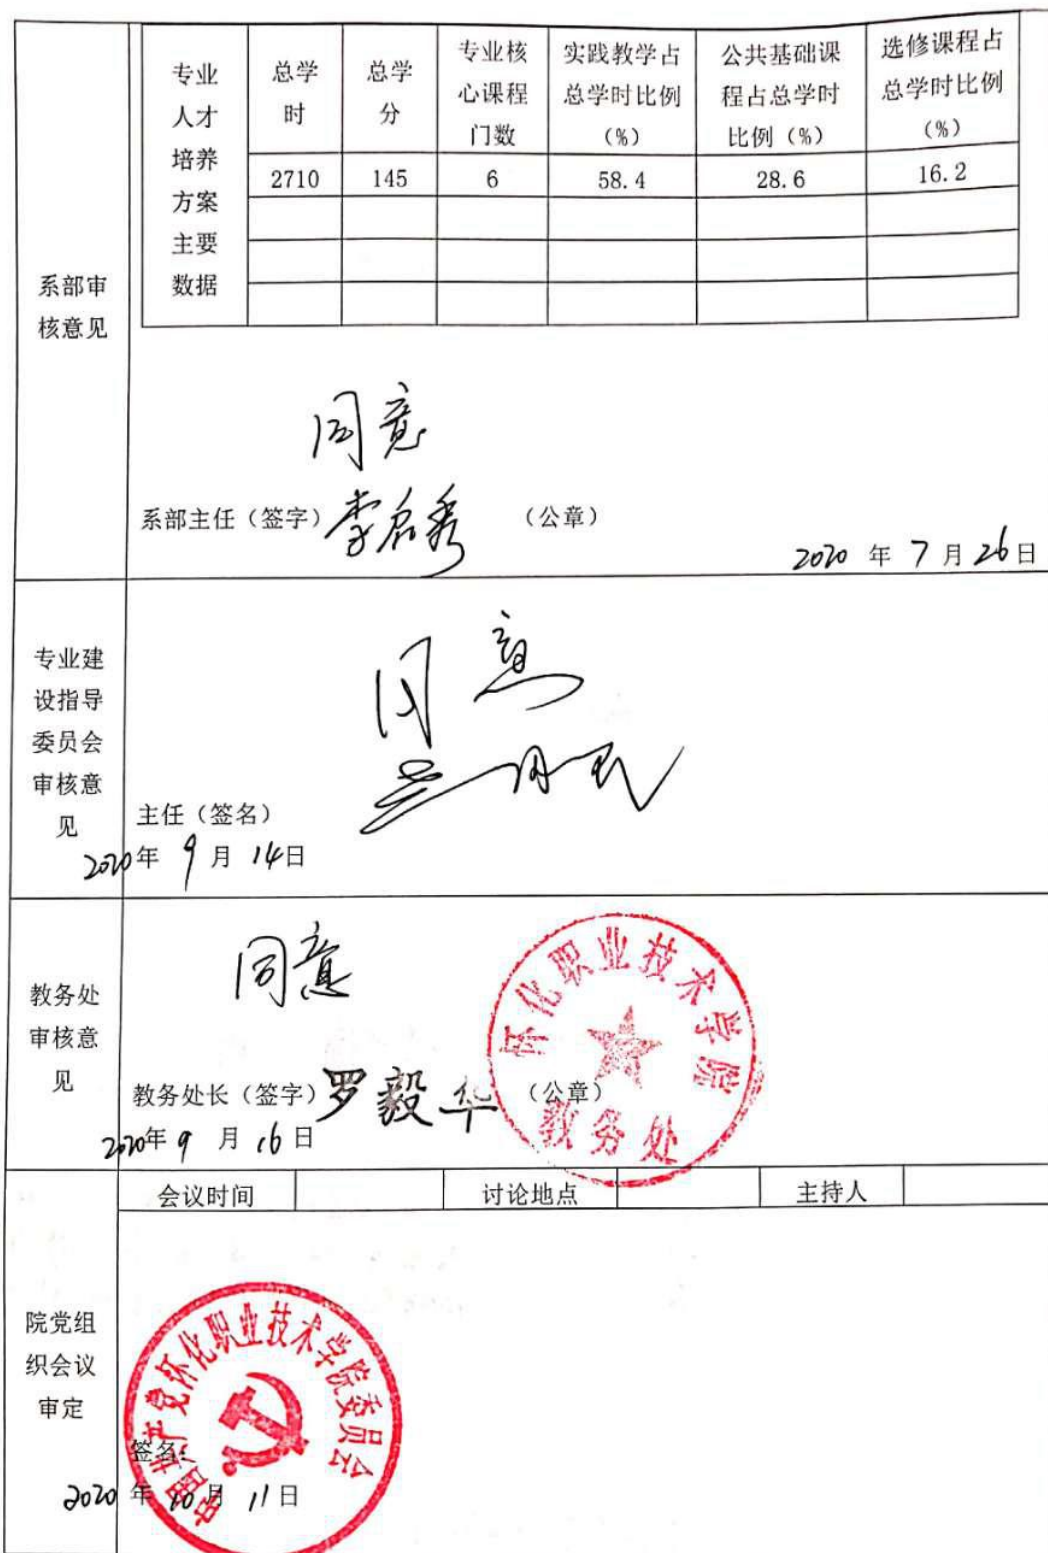 系部审
核意见
专业
人才
培养
方案
主要
数据
总学
时
总学
分
专业核
心课程
门数
实践教学占
总学时比例
（%）
公共基础课
程占总学时
比例（%）
选修课程占
总学时比例
（%）
2710 145 6 58.4 28.6 16.2
同意
系部主任（签字） （公章）
2020 年 7 月 26 日
专业建
设指导
委员会
审核意
见
同意
主任（签名）
2020年 9 月 14日
教务处
审核意
见
同意
教务处长（签字）罗毅华 （公章）
2020年 9 月 16 日
怀化职业技术学院
教务处
会议时间 讨论地点 主持人
院党组
织会议
审定
中国共产党怀化职业技术学院委员会
签名：
2020 年 10 月 11 日